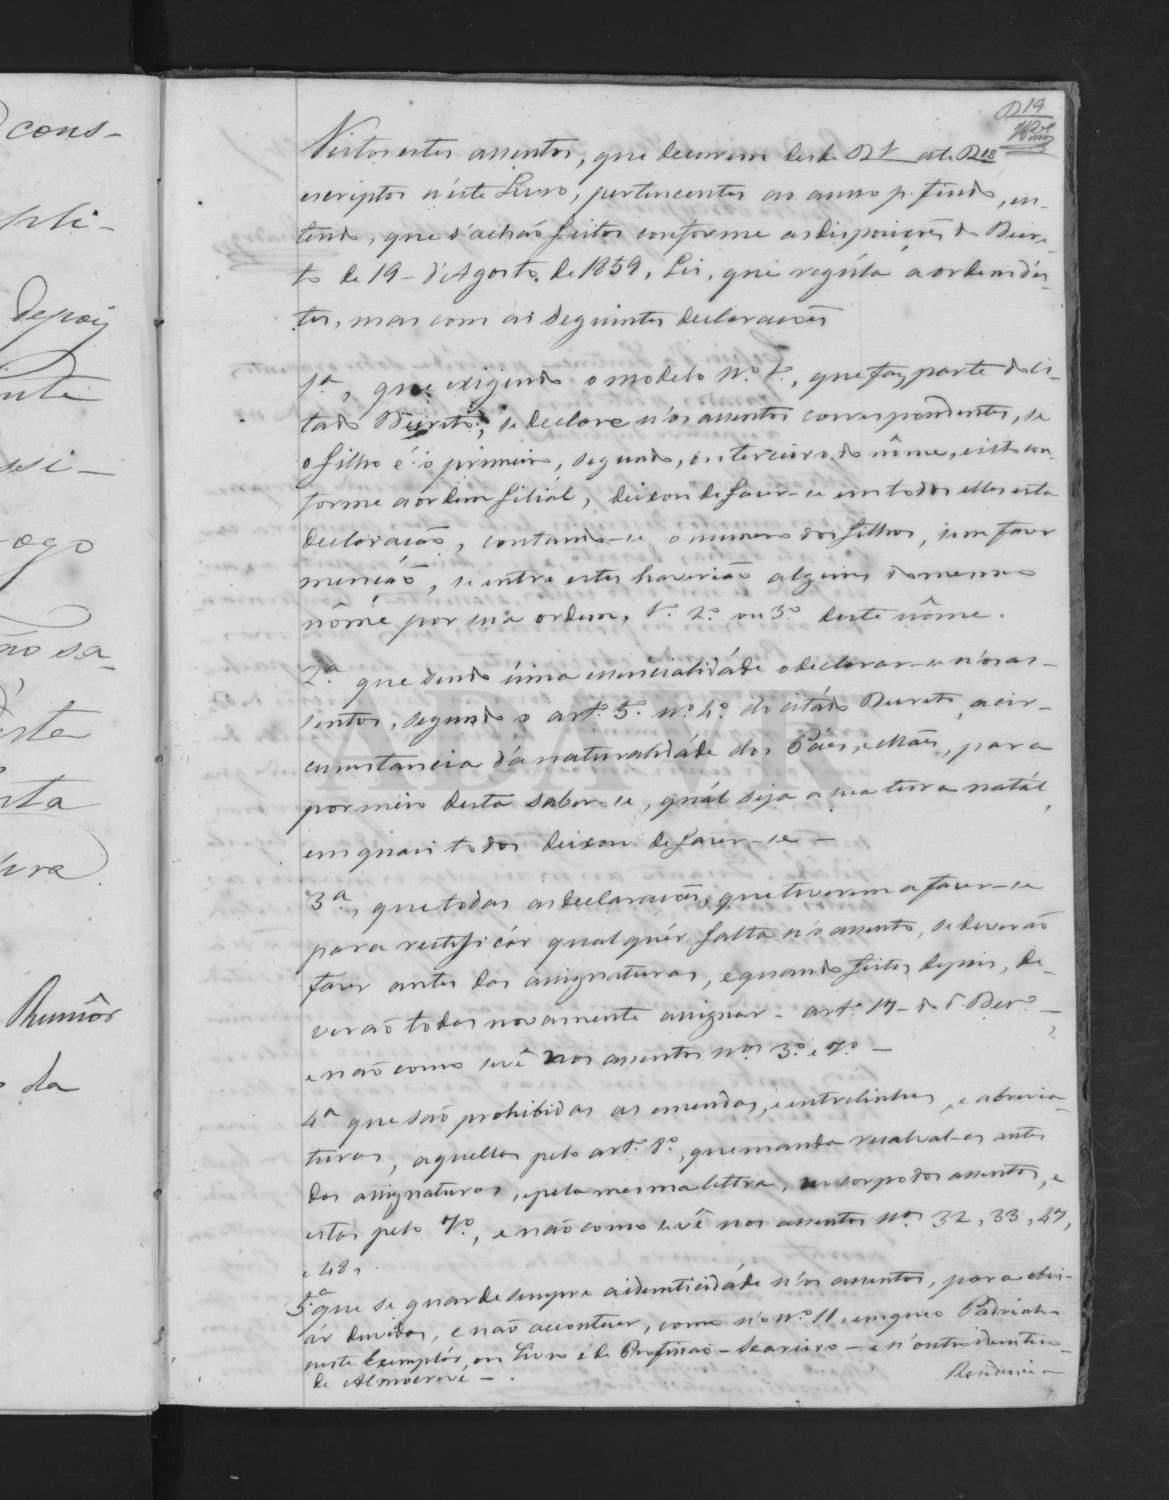 cons-
pli-
depois
nte
ssi-
rogo
ão sa-
d'esta
sta
ura.
Rumôr
da
19
Vistos estes assentos, que decorrem desde 1 até 18
escriptos n'este Livro, pertencentes ao anno p. findo, en-
tendo, que s'achão feitos conforme as disposições do Decre-
to de 19 d'Agosto de 1859, Lei, que regúla a ordem d'es-
tes, mas com as seguintes declarações
1ª, que exigindo o modelo Nº 1º, que faz parte do ci-
tado Decreto, se declare n'os assentos correspondentes, se
o filho é o primeiro, segundo, ou terceiro do nôme, isto con-
forme a ordem filiál, deixou de fazer-se em todos elles esta
declaração, contando-se o numero dos filhos, sem fazer
menção, se entre estes haverião alguns do mesmo
nôme por sua ordem, 1º 2º ou 3º deste nôme.
2ª que sendo úma essencialidáde o declarar-se n'os as-
sentos, segundo o artº 5º nº 4º do citádo Decreto, a cir-
cunstancia d'a naturalidáde dos Páes, e Mães, para
por meio desta saber-se, quál seja a sua terra natál,
em quasi todos deixou de fazer-se -
3ª, que todas as declarações, que tiverem a fazer-se
para rectificár qualquér falta n'o assento, se deverão
fazer antes das assignaturas, e quando feitas depois, de-
verão todos novamente assignár - artº 17 - do dº Decrº -,
e não como se vê nos assentos nºs 3º e 7º -
4ª que são prohibidas as emendas, e entrelinhas, e abrevia-
turas, aquellas pelo artº 8º, que manda resalval-as antes
das assignaturas, e pela mesma lettra, no corpo dos assentos, e
estas pelo 7º, e não como se vê nos assentos nºs 32, 33, 47,
e 48.
5ª que se guarde sempre a identicidáde n'os assentos, para obvi-
ár duvidas, e não acontecer, como n'o nº 11, em que o Padrinho
neste Exemplár, ou Livro é de Profissão - Seareiro - e n'outro identico
de Almocreve - .
Residencia
ADAVR